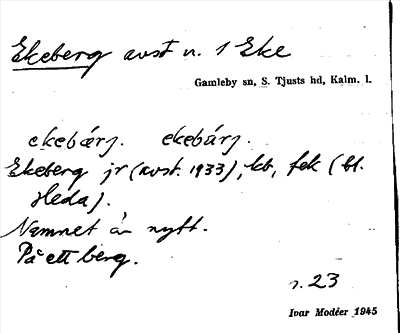 Ekeberg avst n. 1 Eke
Gamleby sn, S. Tjusts hd, Kalm. l.
ekebärj. ekebárj.
Ekeberg jr (avst. 1933), kb, fek (bl.
Heda).
Namnet är nytt.
På ett berg.
s. 23
Ivar Modéer 1945